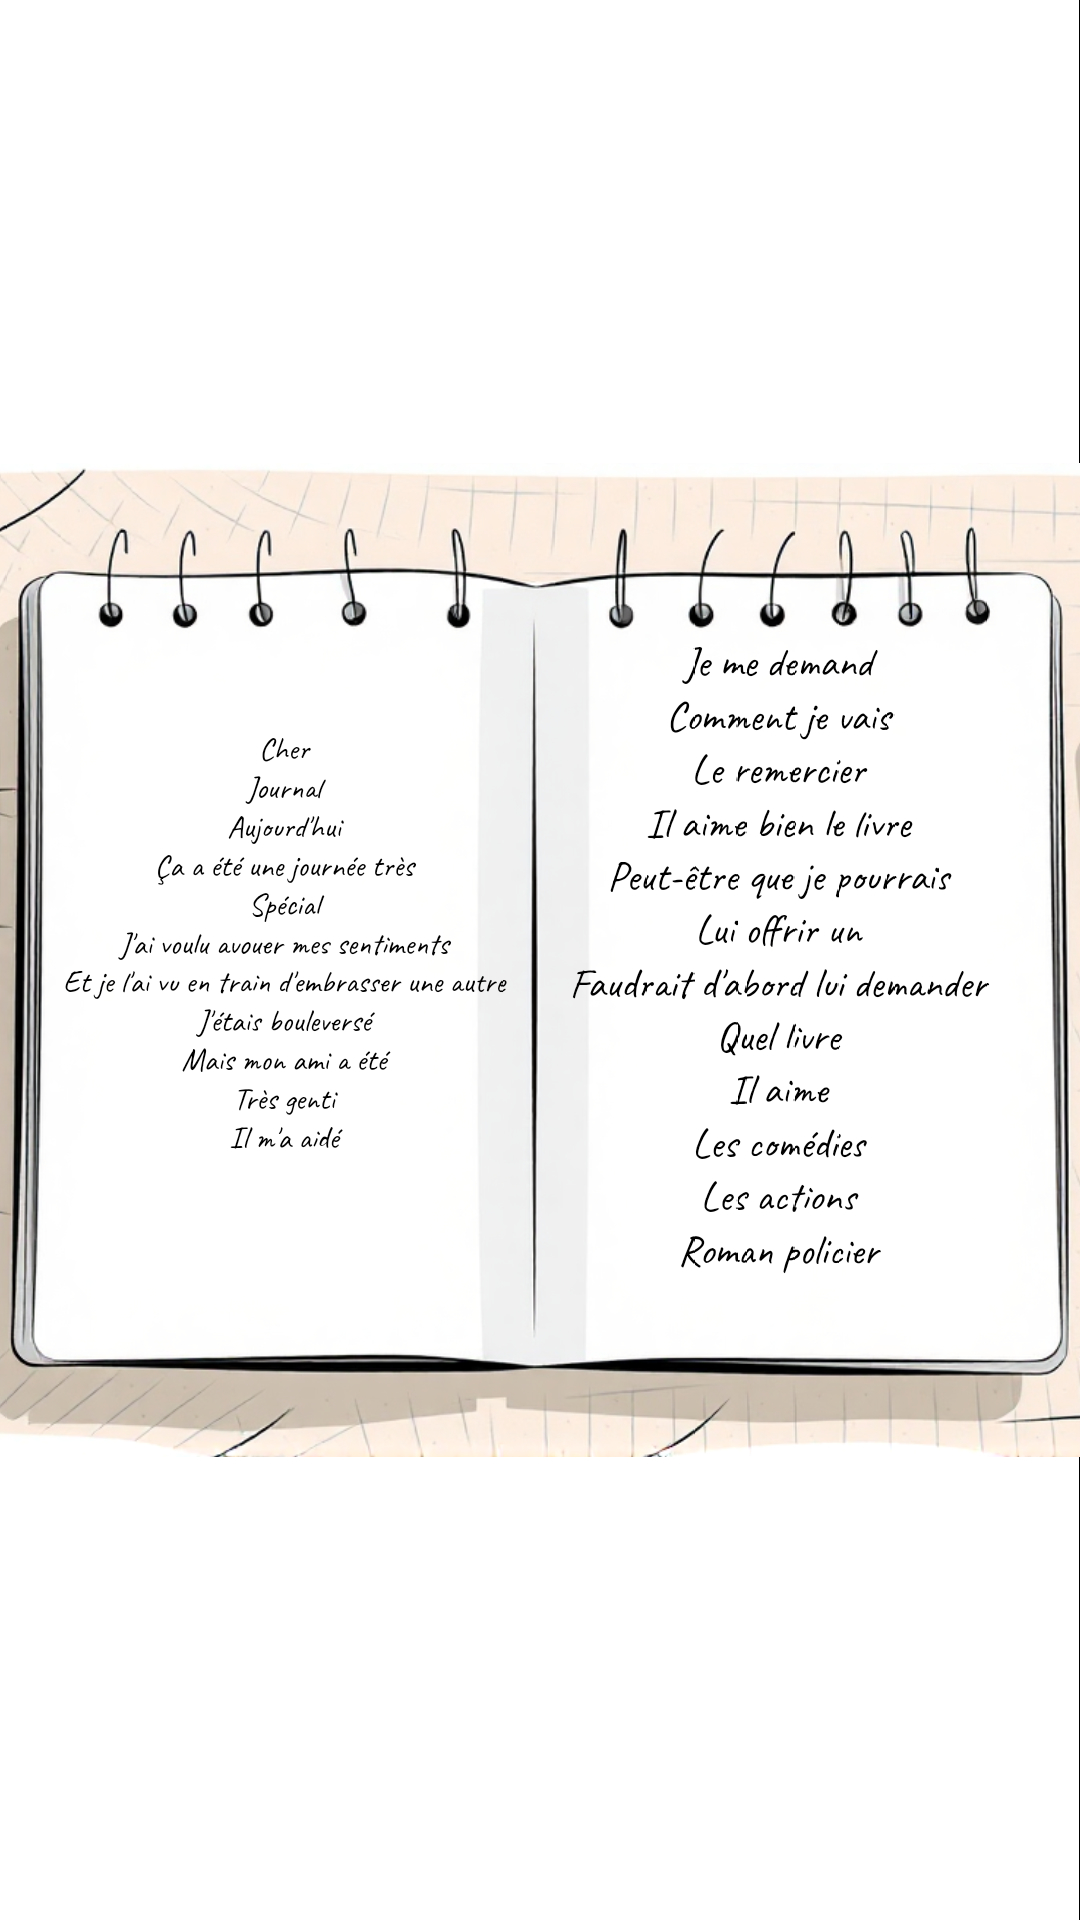 Cher
Journal
Aujourd'hui
Ça a été une journée très
Spécial
J'ai voulu avouer mes sentiments
Et je l'ai vu en train d'embrasser une autre
J'étais bouleversé
Mais mon ami a été
Très genti
Il m'a aidé
Je me demand
Comment je vais
Le remercier
Il aime bien le livre
Peut-être que je pourrais
Lui offrir un
Faudrait d'abord lui demander
Quel livre
Il aime
Les comédies
Les actions
Roman policier